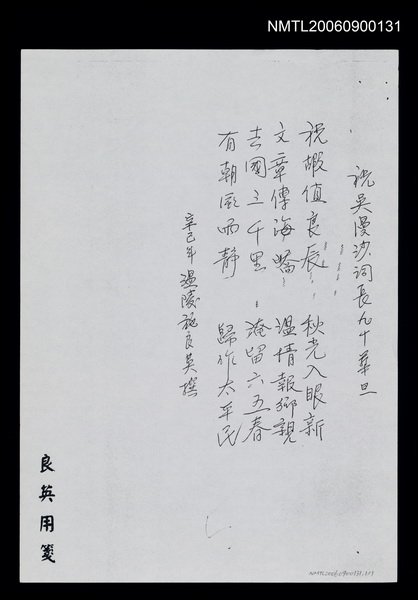 NMTL20060900131
祝吳漫沙詞長九十華旦
祝嘏值良辰 秋光入眼新
文章傳海嶠 溫情報鄉親
去國三千里 淹留六五春
有朝風雨靜 歸作太平民
辛巳年溫陵施良英撰
良英用箋
NMTL20060900131.201